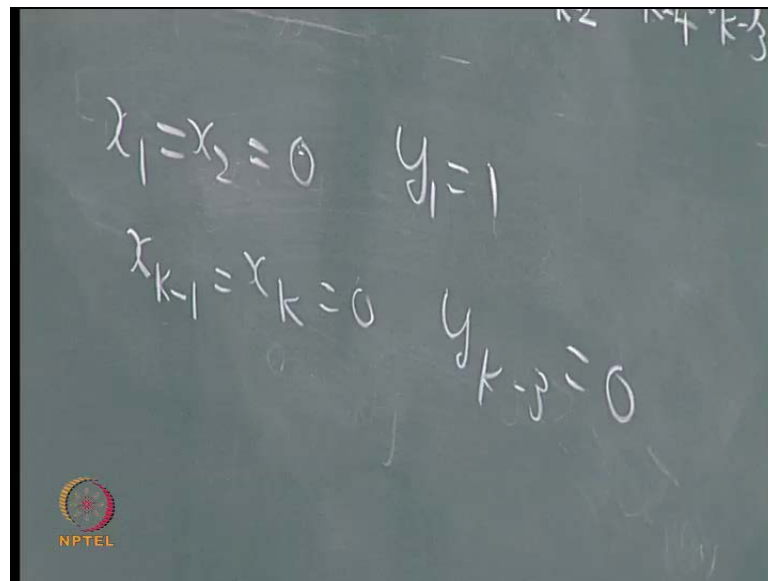 k-2 k-4 k-3
x₁ = x₂ = 0 y₁ = 1
xₖ₋₁ = xₖ = 0 yₖ₋₃ = 0
NPTEL